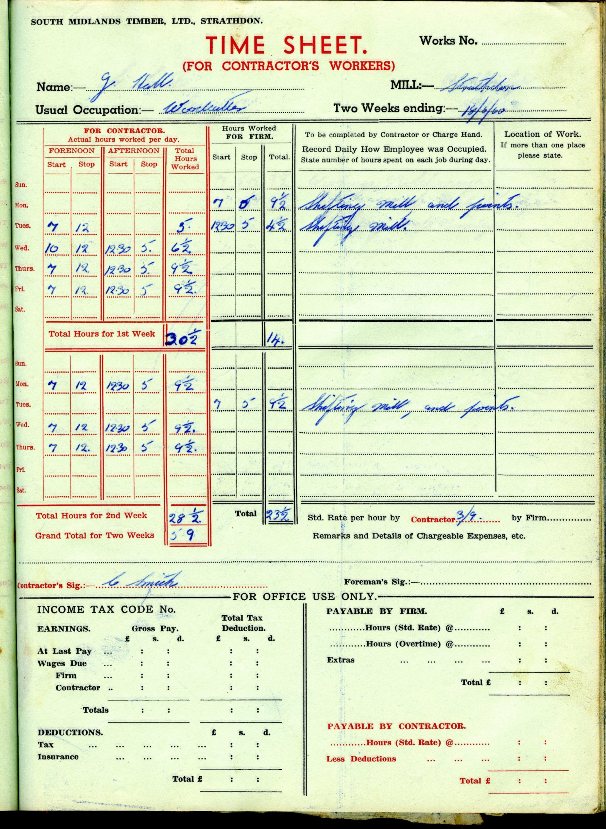 SOUTH MIDLANDS TIMBER, LTD., STRATHDON.
TIME SHEET.
Works No.
(FOR CONTRACTOR'S WORKERS)
Name:— G Hall. MILL:— Strathdon
Usual Occupation:— Woodcutter Two Weeks ending:—
FOR CONTRACTOR. Hours Worked FOR FIRM. To be completed by Contractor or Charge Hand. Location of Work.
Actual hours worked per day. Record Daily How Employee was Occupied. If more than one place please state.
FORENOON AFTERNOON Total Hours Worked State number of hours spent on each job during day.
Start Stop Start Stop Start Stop Total.
Sun.
Mon. 7 5 9½ Shifting mill and joints.
Tues. 7 12 5. 1230 5 4½ Shifting mill.
Wed. 10 12 1230 5. 6½
Thurs. 7 12 1230 5. 9½
Fri. 7 12 1230 5 9½
Sat.
Total Hours for 1st Week 30½ 14.
Sun.
Mon. 7 12 1230 5 9½
Tues. 7 5 9½ Shifting mill, and joints.
Wed. 7 12 1230 5 9½.
Thurs. 7 12. 1230 5 9½.
Fri.
Sat.
Total Hours for 2nd Week 28½ Total 23½ Std. Rate per hour by Contractor 3/9. by Firm
Grand Total for Two Weeks 59 Remarks and Details of Chargeable Expenses, etc.
Contractor's Sig.:— C Smith Foreman's Sig.:—
FOR OFFICE USE ONLY.
INCOME TAX CODE No. PAYABLE BY FIRM. £ s. d.
EARNINGS. Gross Pay. Total Tax Deduction. Hours (Std. Rate) @
£ s. d. £ s. d. Hours (Overtime) @
At Last Pay
Wages Due Extras
Firm
Contractor Total £
Totals
PAYABLE BY CONTRACTOR.
DEDUCTIONS. £ s. d.
Tax Hours (Std. Rate) @
Insurance Less Deductions
Total £ Total £